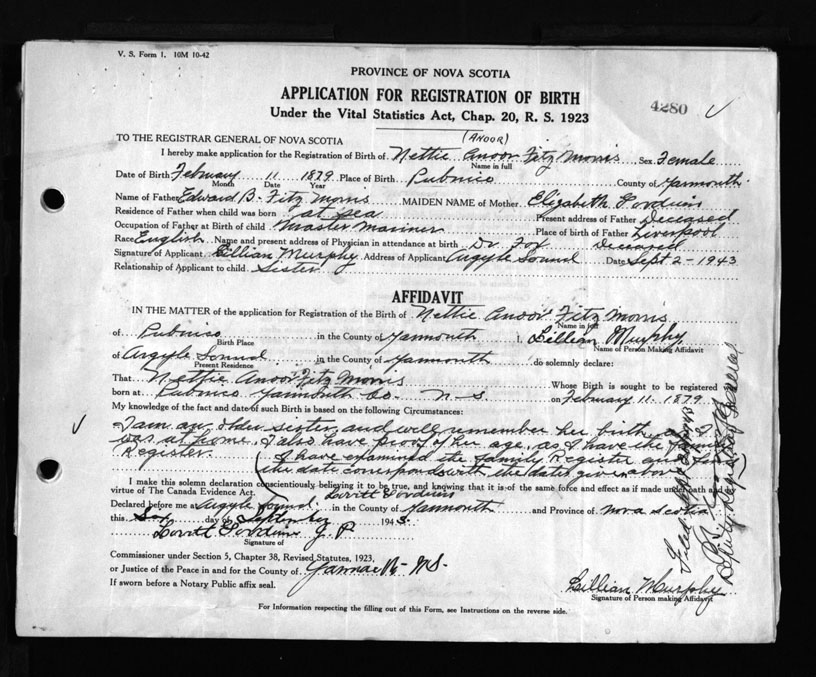 V. S. Form 1. 10M 10-42
PROVINCE OF NOVA SCOTIA
APPLICATION FOR REGISTRATION OF BIRTH
4280
Under the Vital Statistics Act, Chap. 20, R. S. 1923
TO THE REGISTRAR GENERAL OF NOVA SCOTIA
(ANOOR)
I hereby make application for the Registration of Birth of Nettie Anoor Fitz Morris Sex Female
Name in full
Date of Birth February 11 1879 Place of Birth Pubnico County of Yarmouth
Month Date Year
Name of Father Edward B. Fitz Morris MAIDEN NAME of Mother Elizabeth
Residence of Father when child was born at sea Present address of Father Deceased
Occupation of Father at Birth of child Master Mariner Place of birth of Father Liverpool
Race English Name and present address of Physician in attendance at birth Dr. Fox Deceased
Signature of Applicant Lillian Murphy Address of Applicant Argyle Sound Date Sept 2 - 1943
Relationship of Applicant to child Sister
AFFIDAVIT
IN THE MATTER of the application for Registration of the Birth of Nettie Anoor Fitz Morris
Name in full
of Pubnico in the County of Yarmouth I, Lillian Murphy
Birth Place Name of Person Making Affidavit
of Argyle Sound in the County of Yarmouth do solemnly declare:
Present Residence
That Nettie Anoor Fitz Morris Whose Birth is sought to be registered
born at Pubnico Yarmouth Co. N. S. on February 11. 1879
My knowledge of the fact and date of such Birth is based on the following Circumstances:
I am an older sister and will remember her birth as I
was at home. I also have proof of her age, as I have the family
Register. (I have examined the family Register and find
the date corresponds with the date given above
I make this solemn declaration conscientiously believing it to be true, and knowing that it is of the same force and effect as if made under oath and by
virtue of The Canada Evidence Act. Lovitt
Declared before me at Argyle Sound in the County of Yarmouth and Province of Nova Scotia
this day of September 1943.
Lovitt J. P.
Signature of
Commissioner under Section 5, Chapter 38, Revised Statutes, 1923,
or Justice of the Peace in and for the County of Yarmouth N.S.
If sworn before a Notary Public affix seal.
Lillian Murphy
Signature of Person making Affidavit
For Information respecting the filling out of this Form, see Instructions on the reverse side.